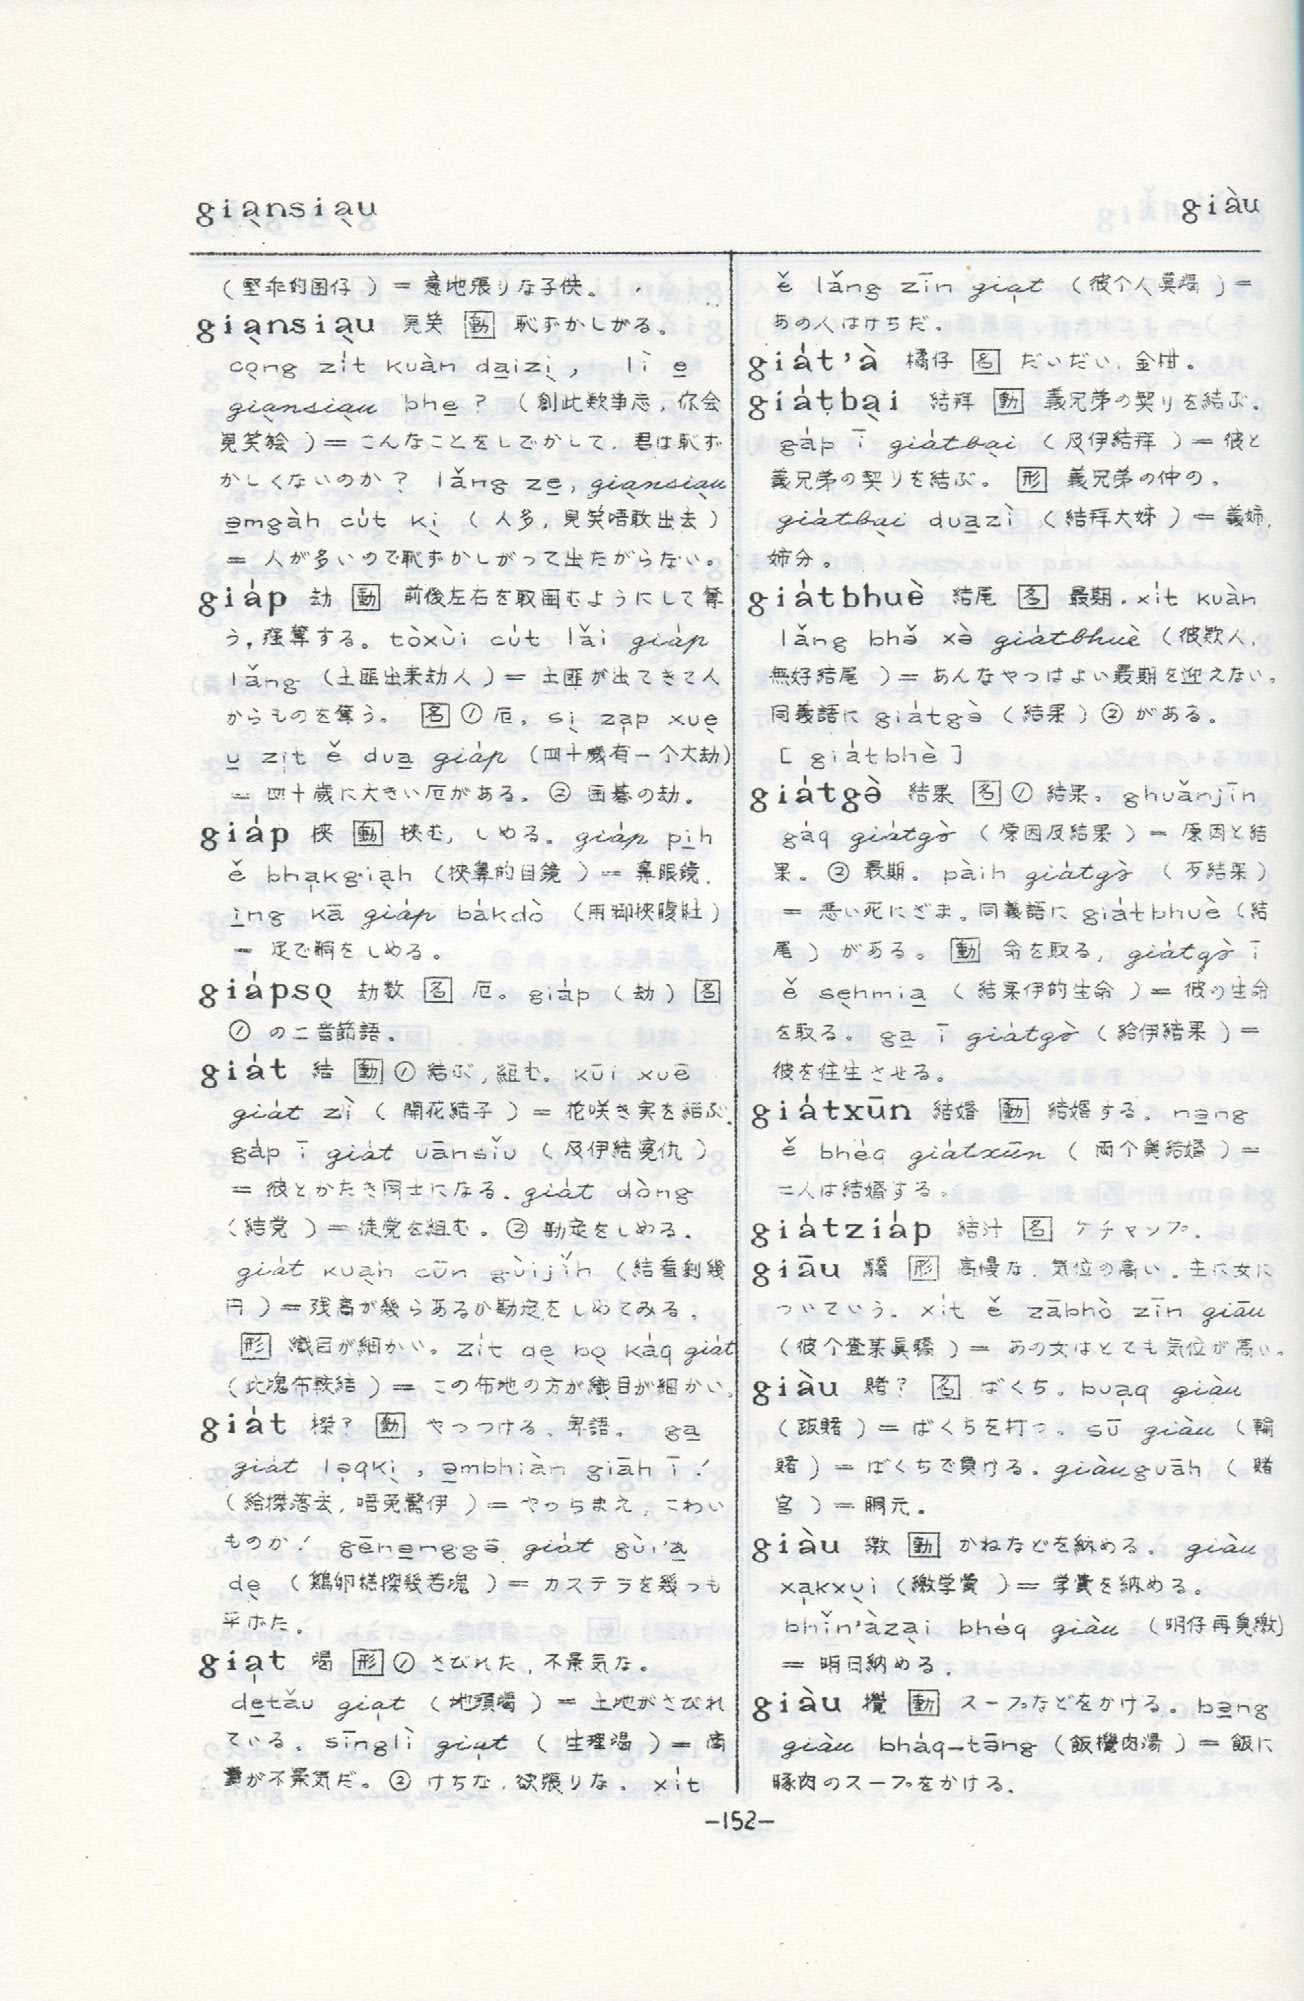 giạnsiạu
giàu
（堅乖的囝仔）＝意地張りな子供。
giạnsiạu 見笑 動 恥ずかしがる。
cọng zi̍t kuàn da̱izị, lì e̱
giạnsiạu bhe̱?（創此款事志，你会
見笑絵）＝こんなことをしでかして，君は恥ず
かしくないのか？ lǎng ze̱, giạnsiạu
ə̱mgàh cu̍t kị（人多，見笑唔敢出去）
＝人が多いので恥ずかしがって出たがらない。
gia̍p 劫 動 前後左右を取囲むようにして奪
う，強奪する。tòxùi cu̍t lǎi gia̍p
lǎng（土匪出来劫人）＝土匪が出てきて人
からものを奪う。 名 ① 厄。sị zạp xuẹ
u̱ zịt ě dua̱ gia̍p（四十歳有一个大劫）
＝四十歳に大きい厄がある。② 囲碁の劫。
gia̍p 挾 動 挾む，しめる。gia̍p pi̱h
ě bhạkgiạh（挾鼻的目鏡）＝鼻眼鏡．
i̱ng kā gia̍p ba̍kdò（用脚挾腹肚）
＝足で胴をしめる。
gia̍psọ 劫数 名 厄。gia̍p（劫）名
① の二音節語。
gia̍t 結 動 ① 結ぶ，組む。kūi xuē
gia̍t zì（開花結子）＝花咲き実を結ぶ．
ga̍p ī gia̍t uānsǐu（及伊結寃仇）
＝彼とかたき同士になる．gia̍t dòng
（結党）＝徒党を組む。② 勘定をしめる．
gia̍t kuạh cūn gùijǐh（結看剰幾
円）＝残高が幾らあるか勘定をしめてみる．
形 織目が細かい。zi̍t dẹ bọ ka̍q gia̍t
（此塊布較結）＝この布地の方が織目が細かい。
gia̍t 搩? 動 やっつける．卑語。 ga̱
gia̍t lə̣qkị, ə̱mbhiàn giāh ī!
（給搩落去，唔免驚伊）＝やっちまえ，こわい
ものか！ gēnə̱nggə̄ gia̍t gùi'a̱
dẹ（鶏卵糕搩幾若塊）＝カステラを幾つも
平げた。
giạt 竭 形 ① さびれた，不景気な。
de̱tǎu giạt（地頭竭）＝土地がさびれ
ている。sīnglì giạt（生理竭）＝商
賣が不景気だ。② けちな，欲張りな． xi̍t
ě lǎng zīn giạt（彼个人真竭）＝
あの人はけちだ．
gia̍t'à 橘仔 名 だいだい，金柑。
gia̍tbại 結拜 動 義兄弟の契りを結ぶ．
ga̍p ī gia̍tbại（及伊結拜）＝彼と
義兄弟の契りを結ぶ。 形 義兄弟の仲の．
gia̍tbại dua̱zì（結拜大姉）＝義姉，
姉分。
gia̍tbhuè 結尾 名 最期．xi̍t kuàn
lǎng bhə̌ xə̀ gia̍tbhuè（彼款人，
無好結尾）＝あんなやつはよい最期を迎えない。
同義語に gia̍tgə̀（結果）② がある。
[ gia̍tbhè ]
gia̍tgə̀ 結果 名 ① 結果。ghuǎnjīn
ga̍q gia̍tgə̀（原因及結果）＝原因と結
果。② 最期。pàih gia̍tgə̀（歹結果）
＝悪い死にざま。同義語に gia̍tbhuè（結
尾）がある。 動 命を取る，gia̍tgə̀ ī
ě sẹhmia̱（結果伊的生命）＝彼の生命
を取る。ga̱ ī gia̍tgə̀（給伊結果）＝
彼を往生させる。
gia̍txūn 結婚 動 結婚する。nə̱ng
ě bhe̍q gia̍txūn（両个覓結婚）＝
二人は結婚する。
gia̍tzia̍p 結汁 名 ケチャップ．
giāu 驕 形 高慢な，気位の高い．主に女に
ついていう．xi̍t ě zābhò zīn giāu
（彼个査某眞驕）＝あの女はとても気位が高い。
giàu 賭? 名 ばくち。buạq giàu
（跋賭）＝ばくちを打つ。sū giàu（輸
賭）＝ばくちで負ける．giàuguāh（賭
官）＝胴元。
giàu 繳 動 かねなどを納める． giàu
xạkxụi（繳学費）＝学費を納める。
bhǐn'àzại bhe̍q giàu（明仔再覓繳）
＝明日納める．
giàu 攪 動 スープなどをかける。bə̱ng
giàu bha̍q-tə̄ng（飯攪肉湯）＝飯に
豚肉のスープをかける．
—152—